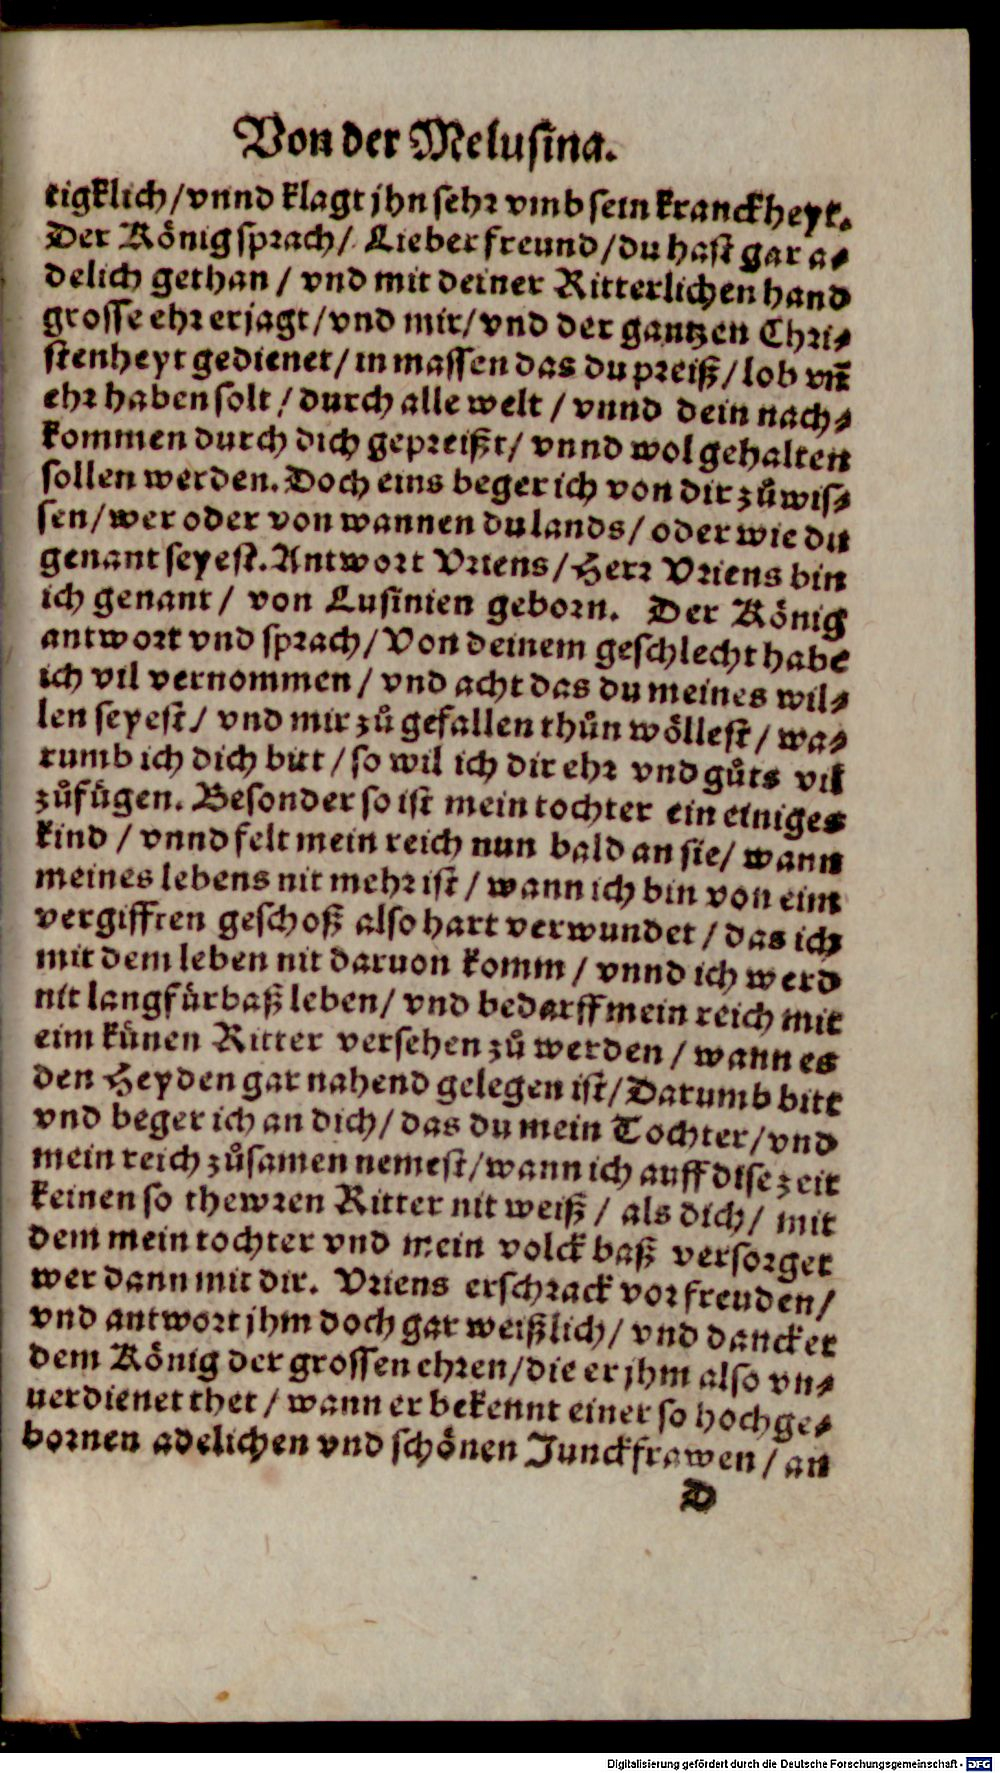 Von der Melusina.
tigklich / vnnd klagt jhn sehr vmb sein kranckheyt.
Der König sprach / Lieber freund / du hast gar a⸗
delich gethan / vnd mit deiner Ritterlichen hand
grosse ehr erjagt / vnd mir / vnd der gantzen Chri⸗
stenheyt gedienet / in massen das du preiß / lob vn̄
ehr haben solt / durch alle welt / vnnd dein nach⸗
kommen durch dich gepreißt / vnnd wol gehalten
sollen werden. Doch eins beger ich von dir zů wis⸗
sen / wer oder von wannen du lands / oder wie du
genant seyest. Antwort Vriens / Herr Vriens bin
ich genant / von Lusinien geborn. Der König
antwort vnd sprach / Von deinem geschlecht habe
ich vil vernommen / vnd acht das du meines wil⸗
len seyest / vnd mir zů gefallen thůn wöllest / wa⸗
rumb ich dich bitt / so wil ich dir ehr vnd gůts vil
zůfügen. Besonder so ist mein tochter ein einiges
kind / vnnd felt mein reich nun bald an sie / wann
meines lebens nit mehr ist / wann ich bin von eim
vergifften geschoß also hart verwundet / das ich
mit dem leben nit daruon komm / vnnd ich werd
nit lang fürbaß leben / vnd bedarff mein reich mit
eim künen Ritter versehen zů werden / wann es
den Heyden gar nahend gelegen ist / Darumb bitt
vnd beger ich an dich / das du mein Tochter / vnd
mein reich zůsamen nemest / wann ich auff dise zeit
keinen so thewren Ritter nit weiß / als dich / mit
dem mein tochter vnd mein volck baß versorget
wer dann mit dir. Vriens erschrack vor freuden /
vnd antwort jhm doch gar weißlich / vnd dancket
dem König der grossen ehren / die er jhm also vn⸗
uerdienet thet / wann er bekennt einer so hochge⸗
bornen adelichen vnd schönen Junckfrawen / an
D
Digitalisierung gefördert durch die Deutsche Forschungsgemeinschaft - DFG